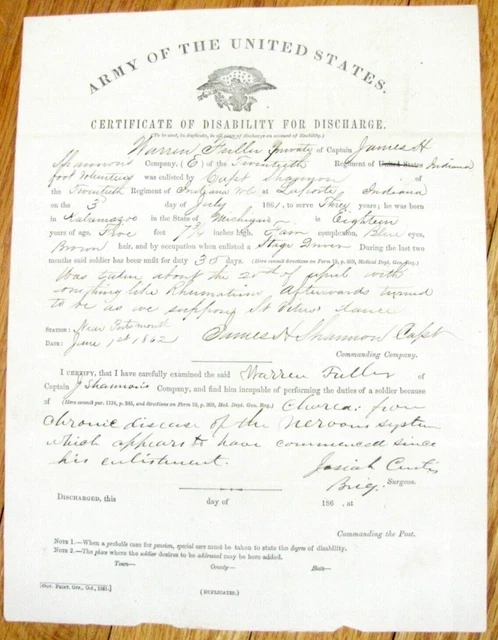 ARMY OF THE UNITED STATES.
CERTIFICATE OF DISABILITY FOR DISCHARGE.
(To be used, in duplicate, in all cases of discharge on account of disability.)
Warren Fuller private of Captain James H
Shannons Company, (E) of the Twentieth Regiment of United States Indiana
foot Volunteers was enlisted by Capt Shannon of
the Twentieth Regiment of Indiana Vols at Laporte Indiana
on the 3 day of July 1861, to serve Three years; he was born
in Kalamazoo in the State of Michigan is Eighteen
years of age, Five feet 7½ inches high, Fair complexion, Blue eyes,
Brown hair, and by occupation when enlisted a Stage Driver During the last two
months said soldier has been unfit for duty 30 days.
Was taken about the 20th of April with
something like Rheumatism Afterwards turned
to be as we suppose St Vitus dance
STATION: Near
DATE: June 1st 1862 James H Shannon Capt
Commanding Company.
I CERTIFY, that I have carefully examined the said Warren Fuller of
Captain J Shannons Company, and find him incapable of performing the duties of a soldier because
of Chorea: from
chronic disease of the nervous system
which appears to have commenced since
his enlistment.
Josiah Curtis
Surgeon.
Brig.
DISCHARGED, this day of 186 , at
Commanding the Post.
NOTE 1.—When a probable case for pension, special care must be taken to state the degree of disability.
NOTE 2.—The place where the soldier desires to be addressed may be here added.
Town— County— State—
(DUPLICATES.)